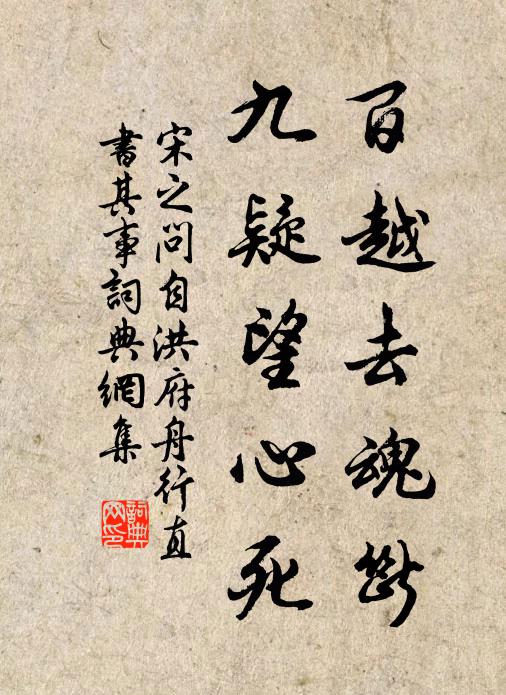 百越去魂斷
九疑望心死
宋之問自洪府舟行直
書其事詞典網集
詞典
网印